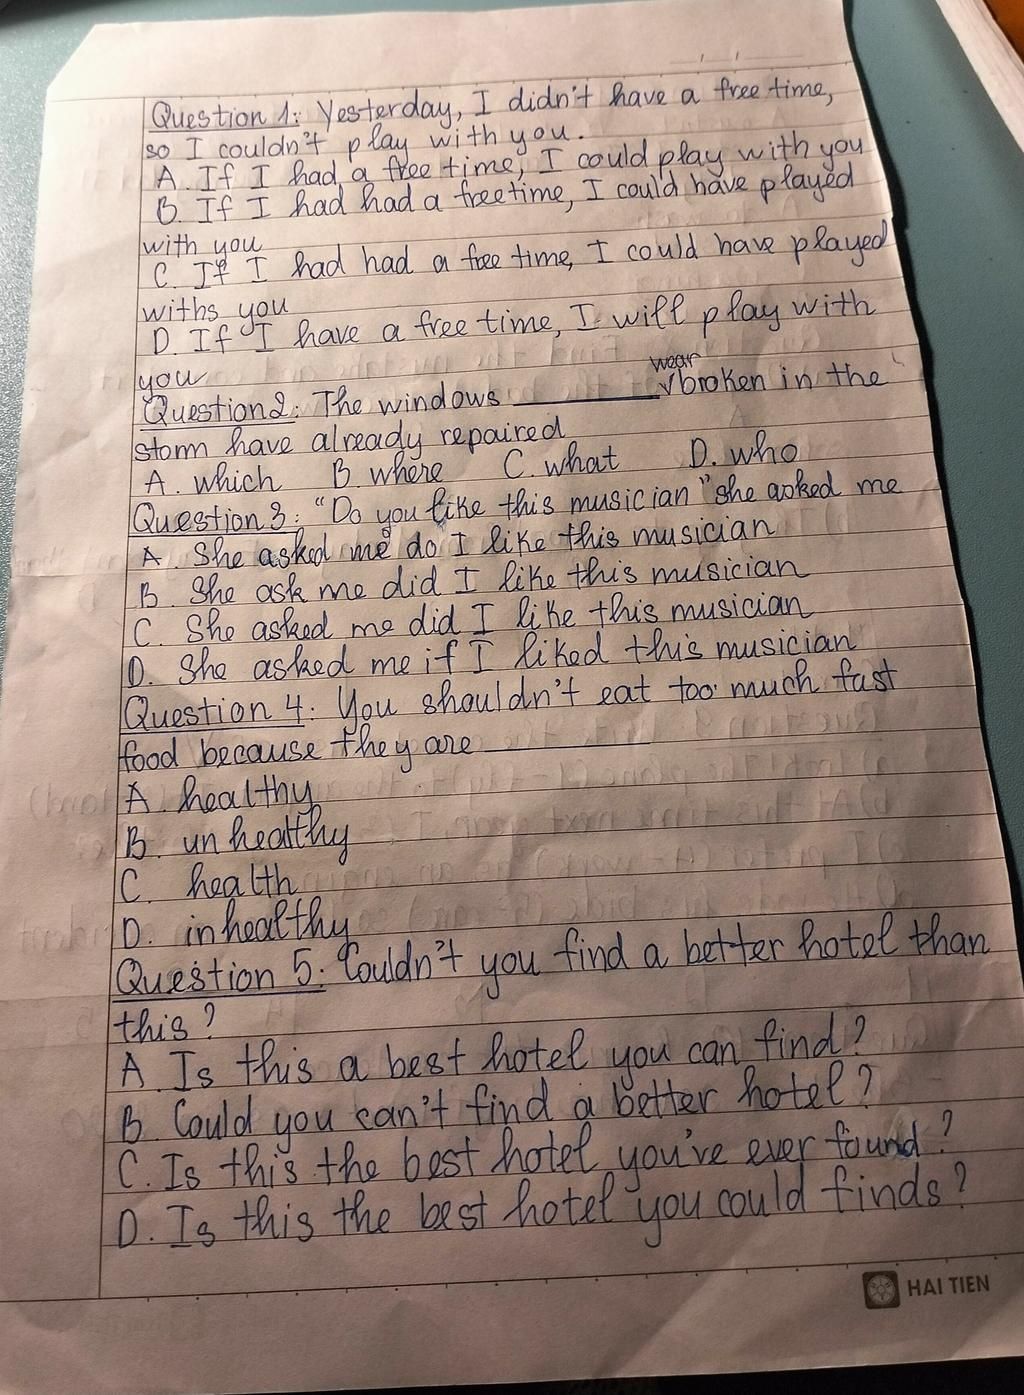 Question 1: Yesterday, I didn't have a free time,
so I couldn't play with you.
A. If I had a free time, I could play with you
B. If I had had a free time, I could have played
with you
C. If I had had a free time, I could have played
withs you
D. If I have a free time, I will play with
you
wear
Question 2: The windows ________ √broken in the
storm have already repaired
A. which B. where C. what D. who
Question 3: "Do you like this musician" she asked me
A. She asked me do I like this musician
B. She ask me did I like this musician
C. She asked me did I like this musician
D. She asked me if I liked this musician
Question 4: You shouldn't eat too much fast
food because they are ________
A. healthy
B. unhealthy
C. health
D. inhealthy
Question 5: Couldn't you find a better hotel than
this?
A. Is this a best hotel you can find?
B. Could you can't find a better hotel?
C. Is this the best hotel you've ever found?
D. Is this the best hotel you could finds?
HAI TIEN